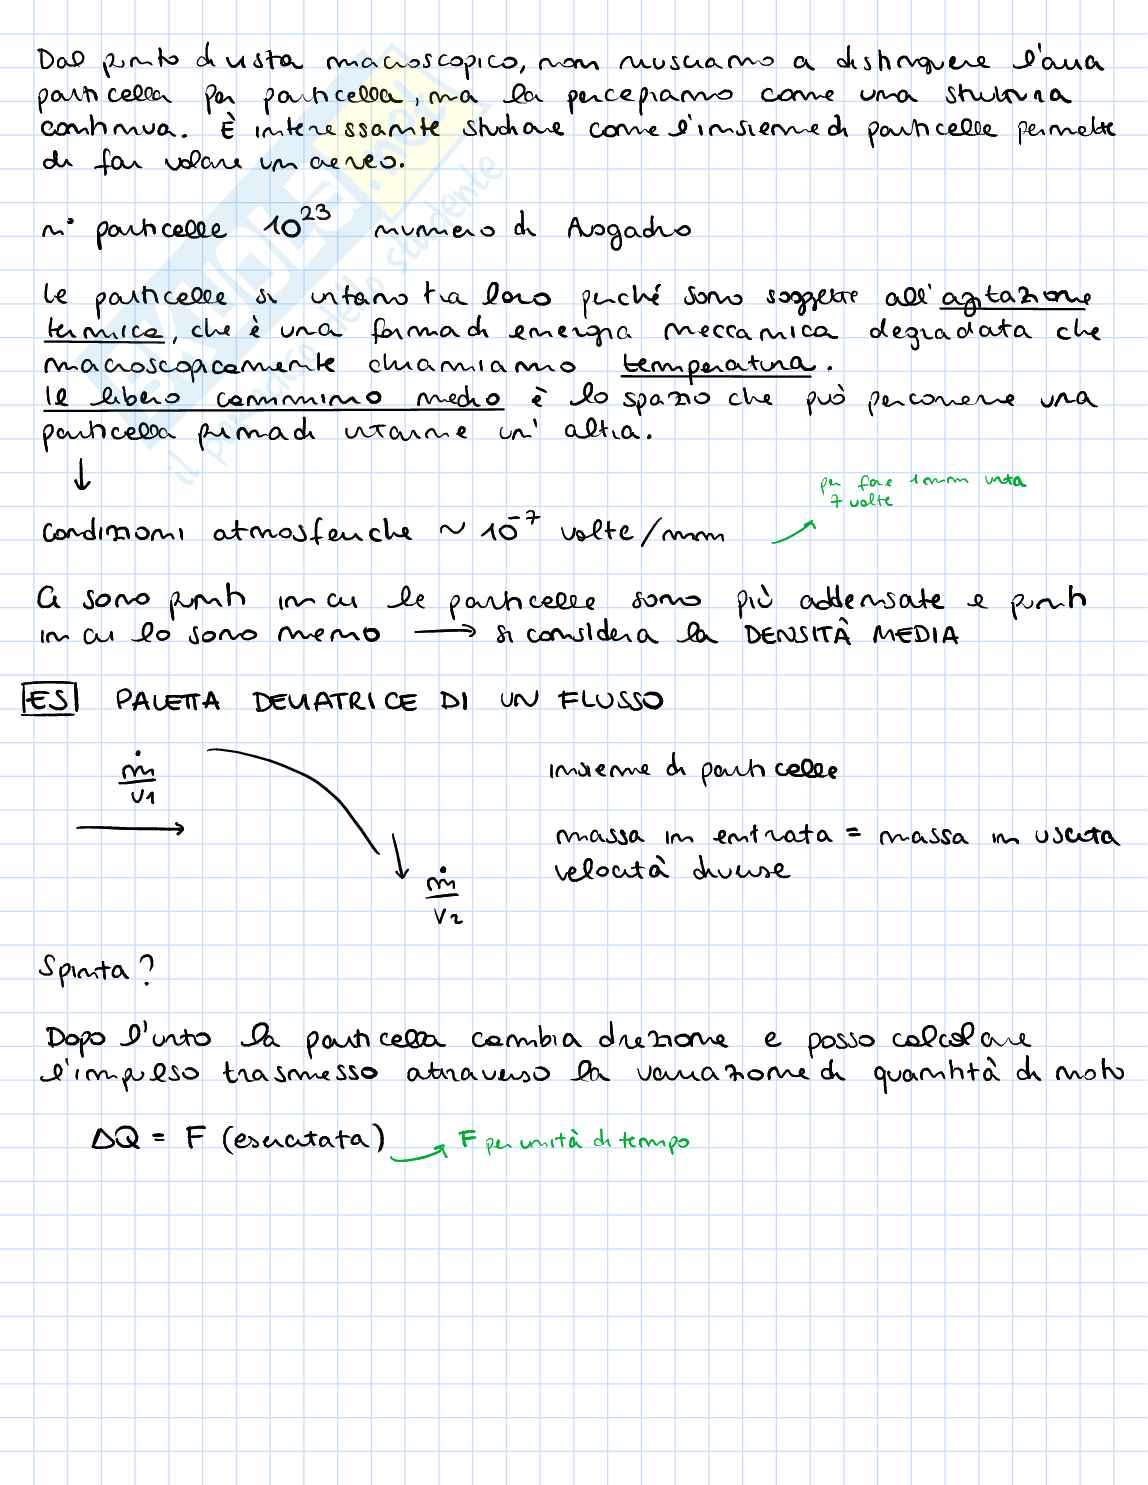 Dal punto di vista macroscopico, non riusciamo a distinguere l'aria
particella per particella, ma la percepiamo come una struttura
continua. È interessante studiare come l'insieme di particelle permette
di far volare un aereo.
n° particelle 10^23 numero di Avogadro
Le particelle si urtano tra loro perché sono soggette all'agitazione
termica, che è una forma di energia meccanica degradata che
macroscopicamente chiamiamo temperatura.
Il libero cammino medio è lo spazio che può percorrere una
particella prima di urtarne un'altra.
↓
per fare 1 mm urta
7 volte
Condizioni atmosferiche ~ 10^-7 volte/mm
Ci sono punti in cui le particelle sono più addensate e punti
in cui lo sono meno → si considera la DENSITÀ MEDIA
ES PALETTA DEVIATRICE DI UN FLUSSO
ṁ
V1
insieme di particelle
massa in entrata = massa in uscita
velocità diverse
ṁ
V2
Spinta?
Dopo l'urto la particella cambia direzione e posso calcolare
l'impulso trasmesso attraverso la variazione di quantità di moto
ΔQ = F (esercitata) → F per unità di tempo
SKUOLA.net
il paradiso dello studente